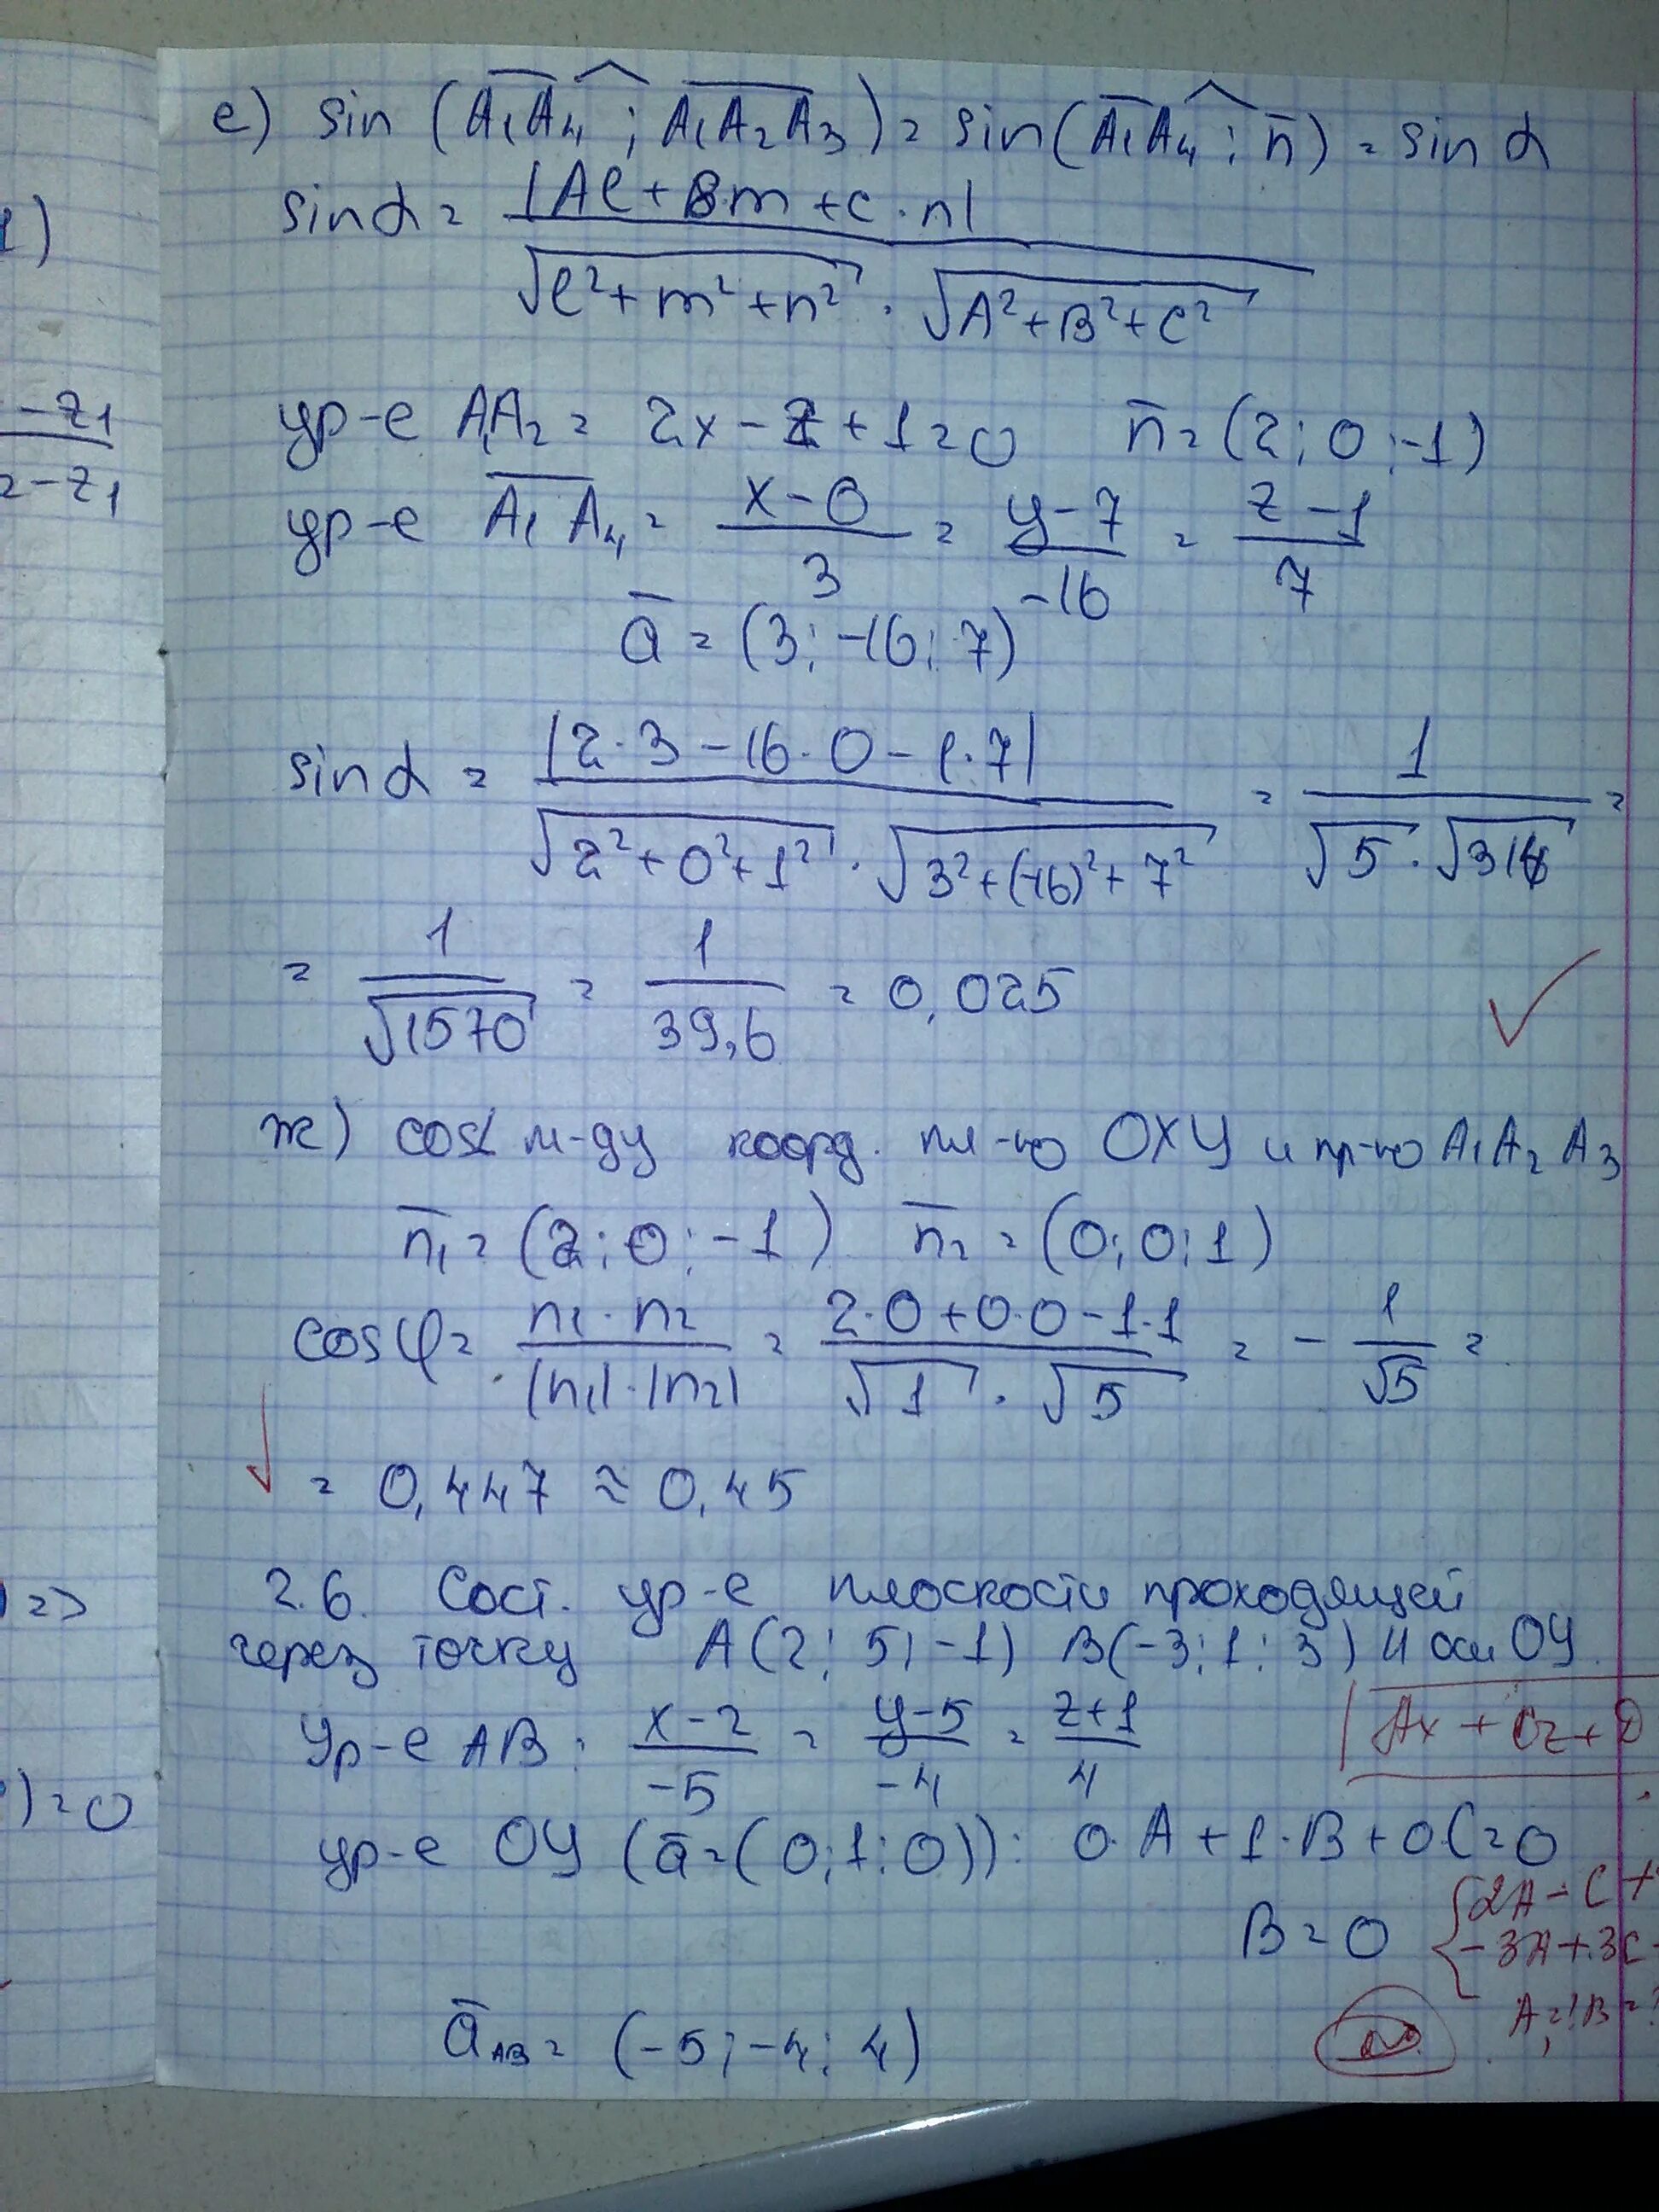 1)
- z₁
2 - z₁
) =>
) = 0
е) sin (A₁A₄ ; A₁A₂A₃) = sin (A₁A₄ ; n̄) = sin α
sin α = |Aℓ + B·m + C·n| / √(ℓ² + m² + n²) · √(A² + B² + C²)
ур-е A₁A₂ = 2x - z + 1 = 0 n̄ = (2; 0; -1)
ур-е A₁A₄ = (x - 0)/3 = (y - 7)/-16 = (z - 1)/7
ā = (3; -16; 7)
sin α = |2·3 - 16·0 - 1·7| / √(2² + 0² + 1²) · √(3² + (-16)² + 7²) = 1 / √5 · √314 =
= 1/√1570 = 1/39,6 = 0,025
ж) cos∠ м-ду коорд. пл-ю OXY и пл-ю A₁A₂A₃
n̄₁ = (2; 0; -1) n̄₂ = (0; 0; 1)
cos φ = n₁ · n₂ / |n₁| · |n₂| = (2·0 + 0·0 - 1·1) / √1 · √5 = - 1/√5 =
= 0,447 ≈ 0,45
2.6. Сост. ур-е плоскости проходящей
через точку A(2; 5; -1) B(-3; 1; 3) и оси OY.
Ур-е AB: (x - 2)/-5 = (y - 5)/-4 = (z + 1)/4
Ax + Cz + D
ур-е OY (ā = (0; 1; 0)): 0·A + 1·B + 0·C = 0
B = 0
2A - C +
-3A + 3C
A = ? B = ?
ā_AB = (-5; -4; 4)